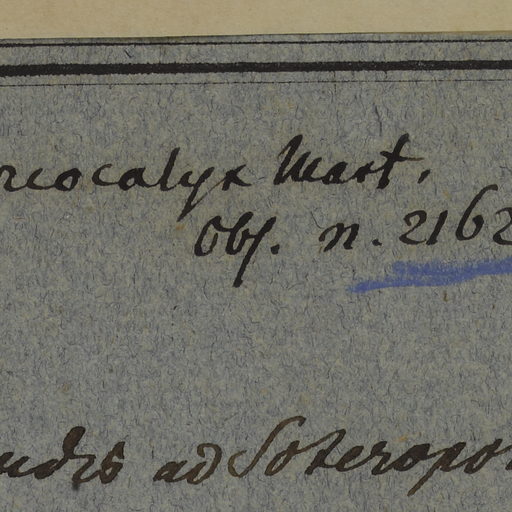 rcocalyx Mart.
Obs. n. 2162
udis ad Soteropo